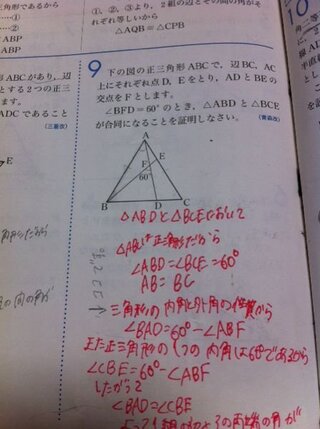 角形であるから
……①
……②
ABP
ABP
①, ②, ③より, 2組の辺とその間の角がそ
れぞれ等しいから
△AQB≡△CPB
形ABCがあり, 辺
とする2つの正三
ます。
ADCであること
(三重改)
E
9 下の図の正三角形ABCで, 辺BC, AC
上にそれぞれ点D, Eをとり, ADとBEの
交点をFとします。
∠BFD=60°のとき, △ABDと△BCE
が合同になることを証明しなさい。
(青森改)
10
A
E
F
60°
B
D
C
△ABDと△BCEにおいて
△ABCは正三角形だから
∠ABD=∠BCE=60°
AB=BC
三角形の内角と外角の性質から
∠BAD=60°-∠ABF
また正三角形の1つの内角は60°であるから
∠CBE=60°-∠ABF
したがって
∠BAD=∠CBE
よって1組の辺とその両端の角が
の間の角が